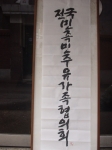 전국민족민주유가족협의회